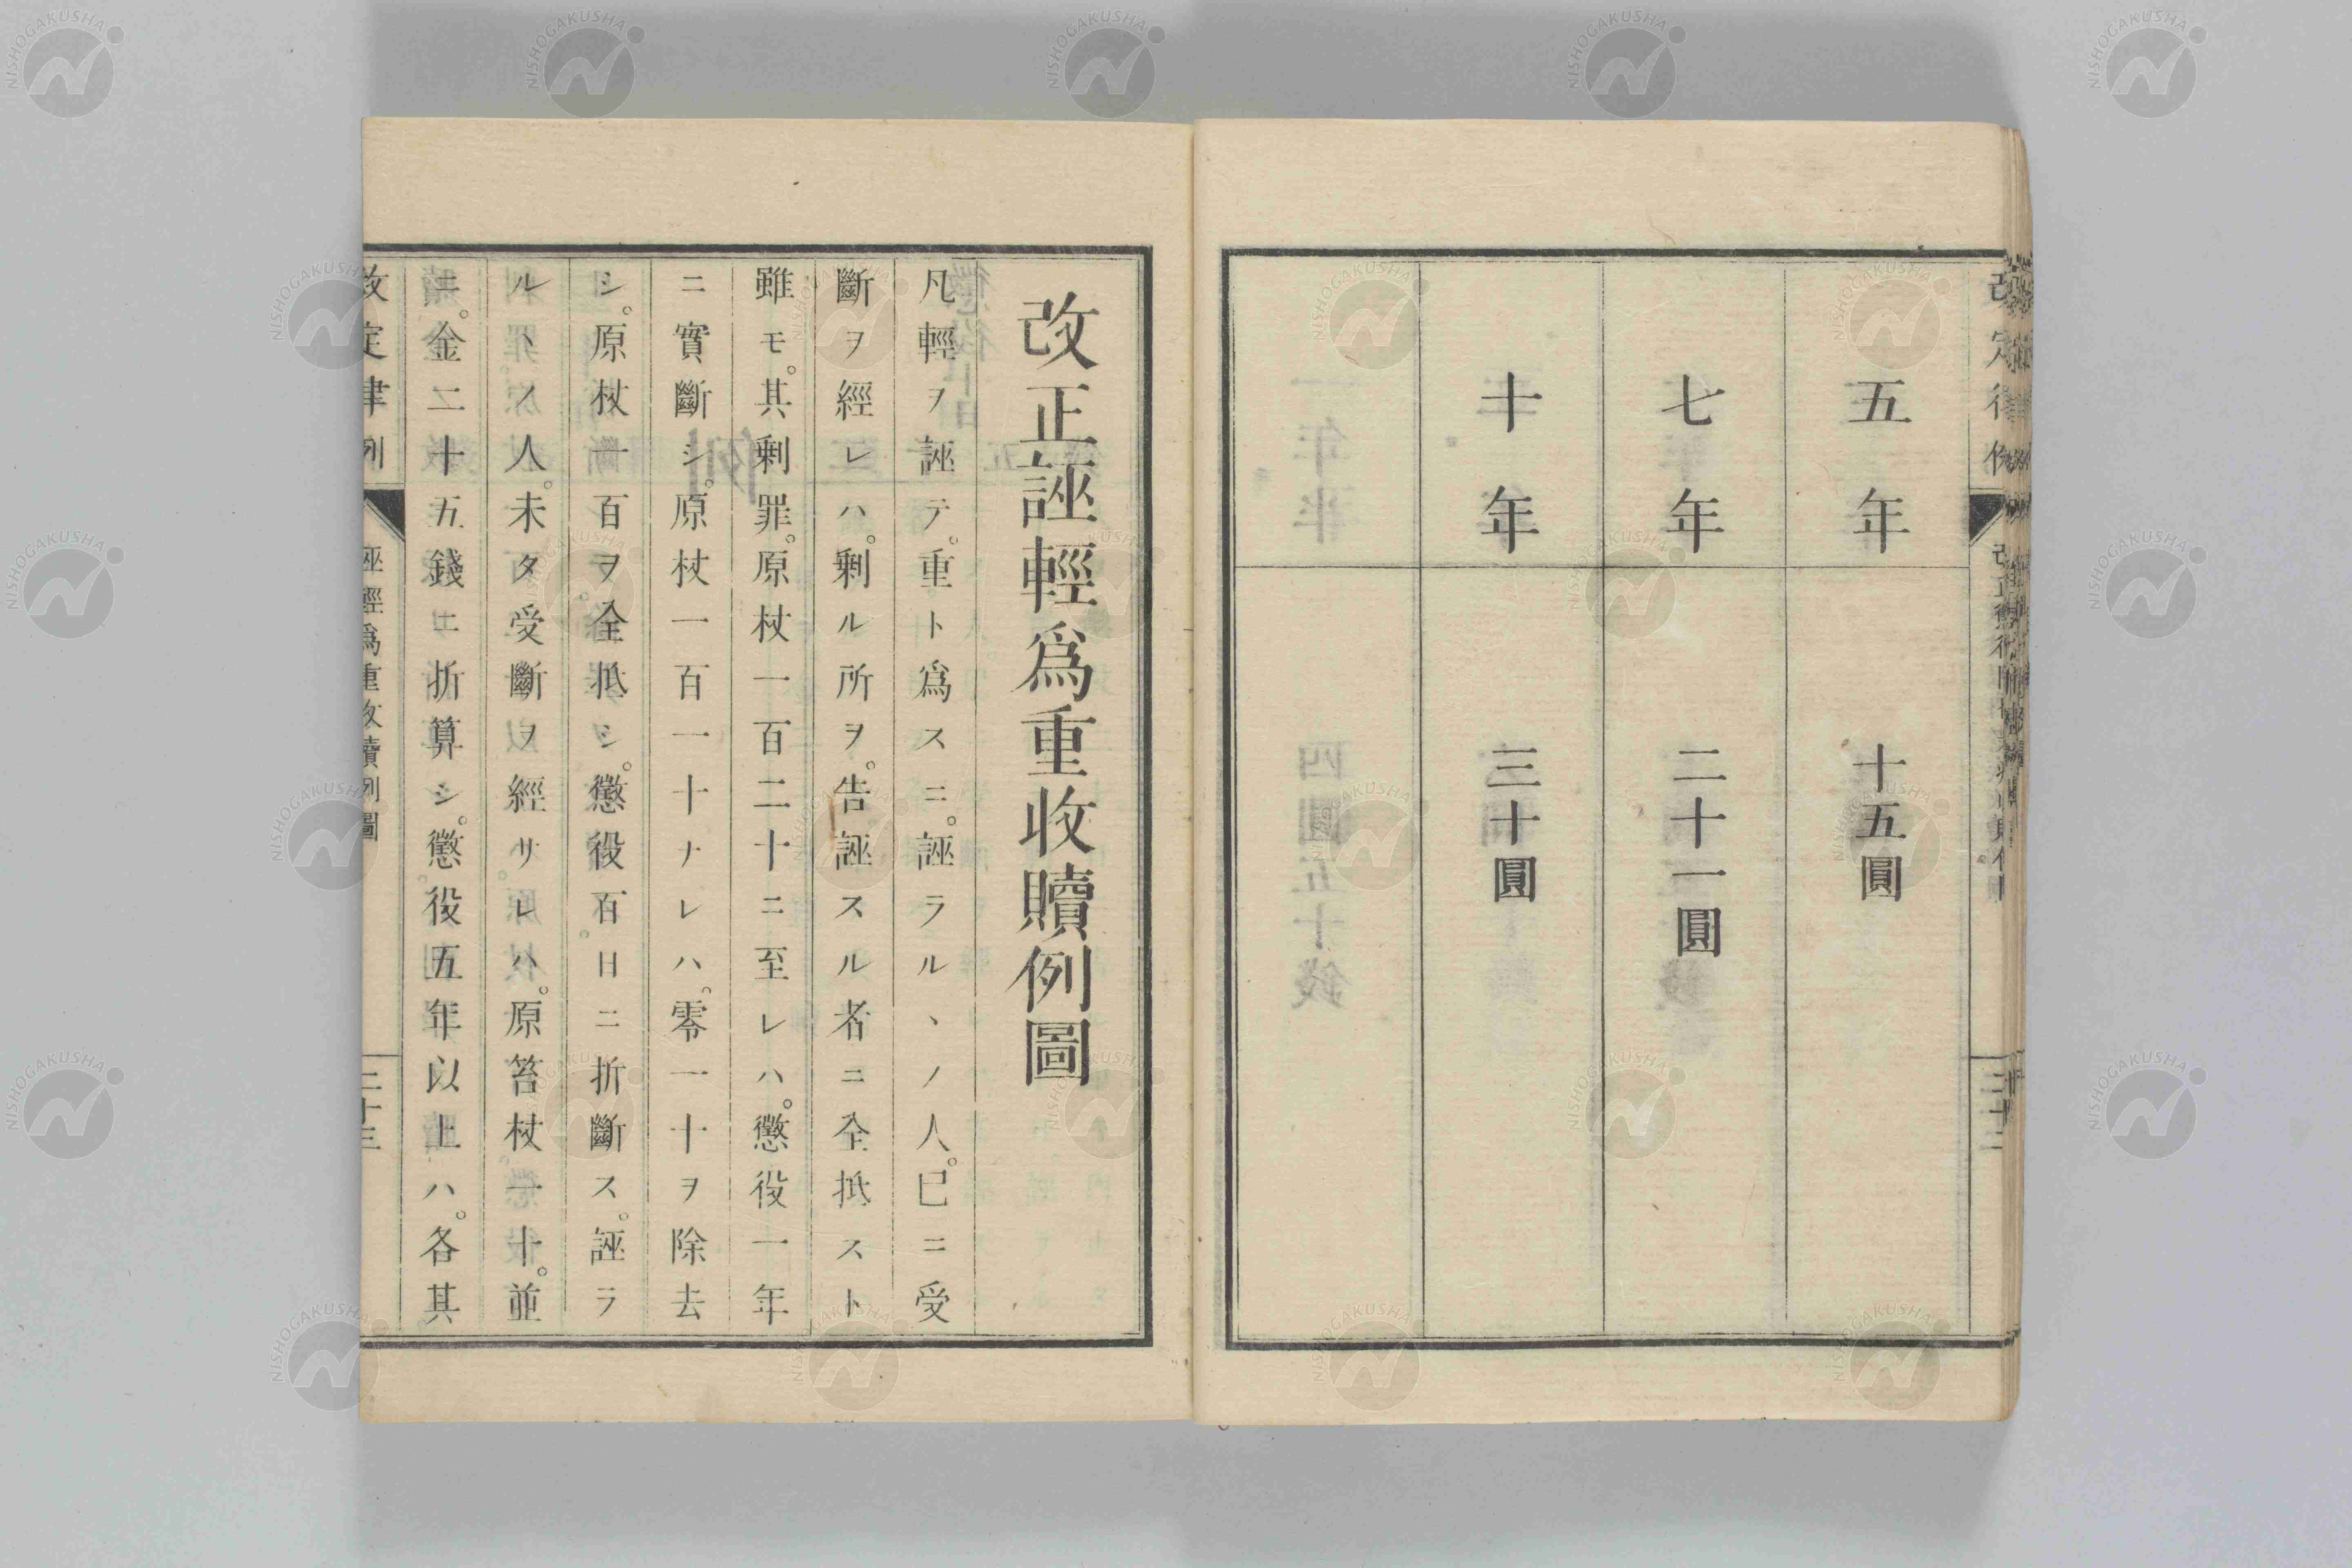 五年
十五圓
七年
二十一圓
十年
三十圓
改正誣輕爲重收贖例圖
凡輕ヲ誣テ。重ト爲スニ。誣ラルヽノ人。已ニ受
斷ヲ經レハ。剩ル所ヲ。告誣スル者ニ全抵スト
雖モ。其剩罪。原杖一百二十ニ至レハ。懲役一年
ニ實斷シ。原杖一百一十ナレハ。零一十ヲ除去
シ。原杖一百ヲ全抵シ。懲役百日ニ折斷ス。誣ラ
ルヽノ人。未タ受斷ヲ經サレハ。原笞杖一十。並
ニ。金二十五錢ニ折算シ。懲役五年以上ハ。各其
改定律例
誣輕爲重收贖例圖
二十三
NISHOGAKUSHA